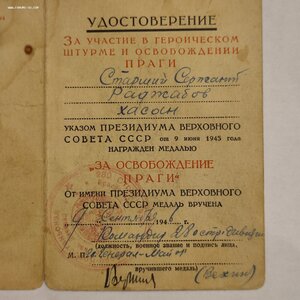 УДОСТОВЕРЕНИЕ
ЗА УЧАСТИЕ В ГЕРОИЧЕСКОМ
ШТУРМЕ И ОСВОБОЖДЕНИИ
ПРАГИ
Старший Сержант
Раджабов
Хасан
УКАЗОМ ПРЕЗИДИУМА ВЕРХОВНОГО
СОВЕТА СССР ОТ 9 ИЮНЯ 1945 ГОДА
НАГРАЖДЕН МЕДАЛЬЮ
"ЗА ОСВОБОЖДЕНИЕ
ПРАГИ"
ОТ ИМЕНИ ПРЕЗИДИУМА ВЕРХОВНОГО
СОВЕТА СССР МЕДАЛЬ ВРУЧЕНА
9 Сентября 194 г.
Командир
М. П. Генерал-Майор
(должность, воинское звание и подпись лица,
вручившего медаль)
(Вехин)